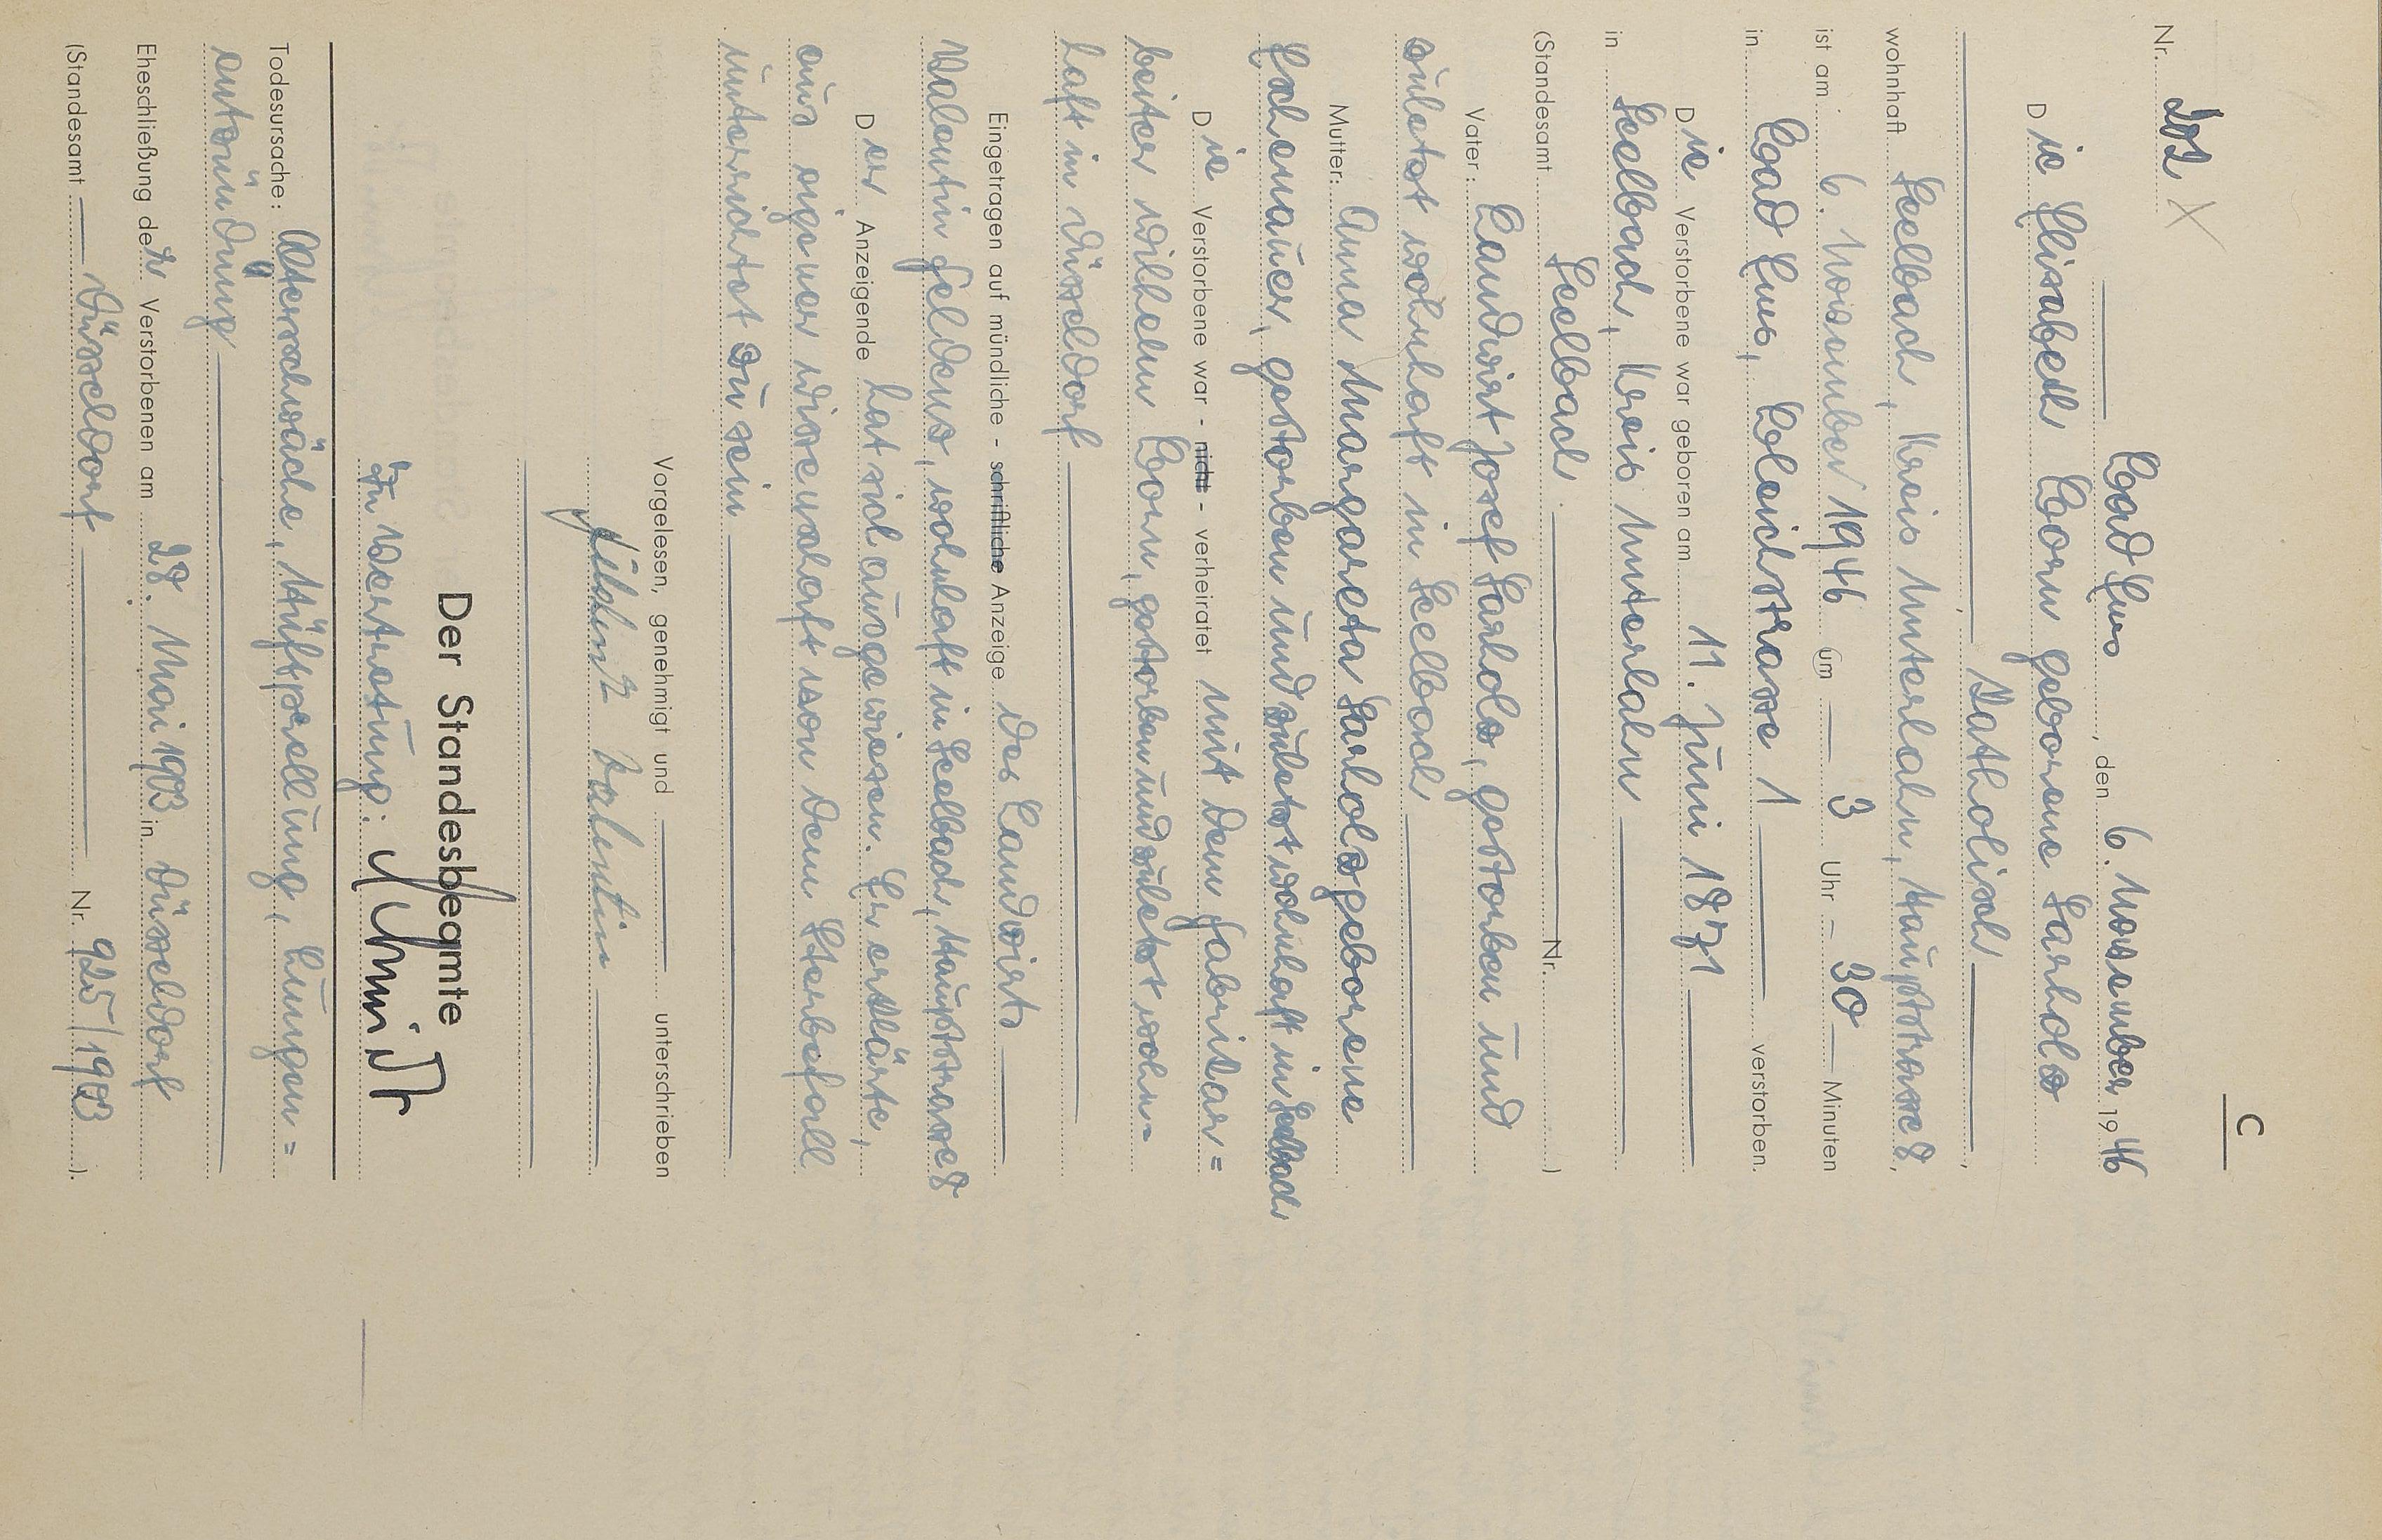 C
Nr. 202
Bad Ems, den 6. November 1946
Die Elisabeth Born geborene Sarholz
Katholisch
wohnhaft Seelbach, Kreis Unterlahn, Hauptstrasse 8,
ist am 6. November 1946 um — 3 Uhr — 30 — Minuten
in Bad Ems, Bleichstrasse 1 verstorben.
Die Verstorbene war geboren am 11. Juni 1871
in Seelbach, Kreis Unterlahn
(Standesamt Seelbach Nr. )
Vater: Landwirt Josef Sarholz, gestorben und
zuletzt wohnhaft in Seelbach
Mutter: Anna Margareta Sarholz geborene
Eschenauer, gestorben und zuletzt wohnhaft in Seelbach
Die Verstorbene war - nicht - verheiratet mit dem Fabrikar=
beiter Wilhelm Born, gestorben und zuletzt wohn-
haft in Düsseldorf
Eingetragen auf mündliche - schriftliche Anzeige des Landwirts
Valentin Feldens, wohnhaft in Seelbach, Hauptstrasse 8
Der Anzeigende hat sich ausgewiesen. Er erklärte,
aus eigener Wissenschaft von dem Sterbefall
unterrichtet zu sein
Vorgelesen, genehmigt und unterschrieben
Valentin
Der Standesbeamte
In Vertretung: Schmidt
Todesursache: Altersschwäche, Hüftprellung, Lungen=
entzündung
Eheschließung der Verstorbenen am 28. Mai 1903 in Düsseldorf
(Standesamt — Düsseldorf Nr. 925/1903 ).